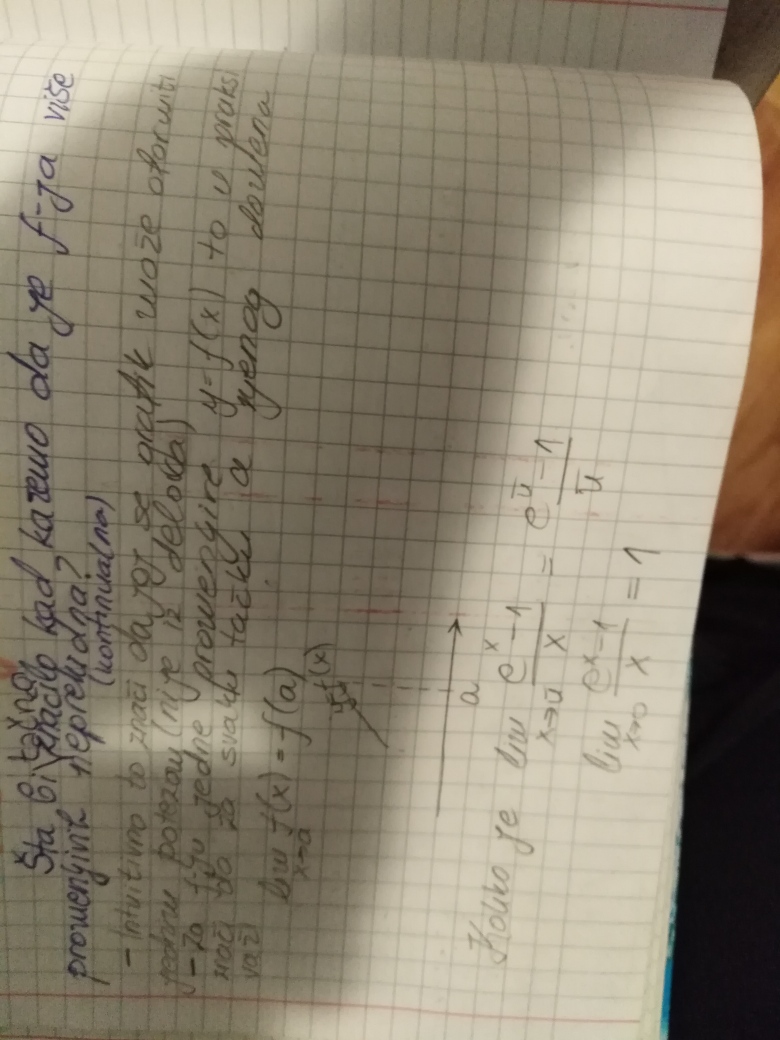 Šta bi tačno značilo kad kažemo da je f-ja više
promenjivih neprekidna?
(kontinualna)
- Intuitivno to znači da joj se grafik može
jednim potezom (nije iz delova)
- Za f-ju jedne promenjive y = f(x) to u praksi
znači da za svaku tačku a njenog domena
važi
lim f(x) = f(a)
x→a
f(x)
a
Koliko je lim e^x - 1 / x = e^π - 1 / π
x→π
lim e^x - 1 / x = 1
x→0